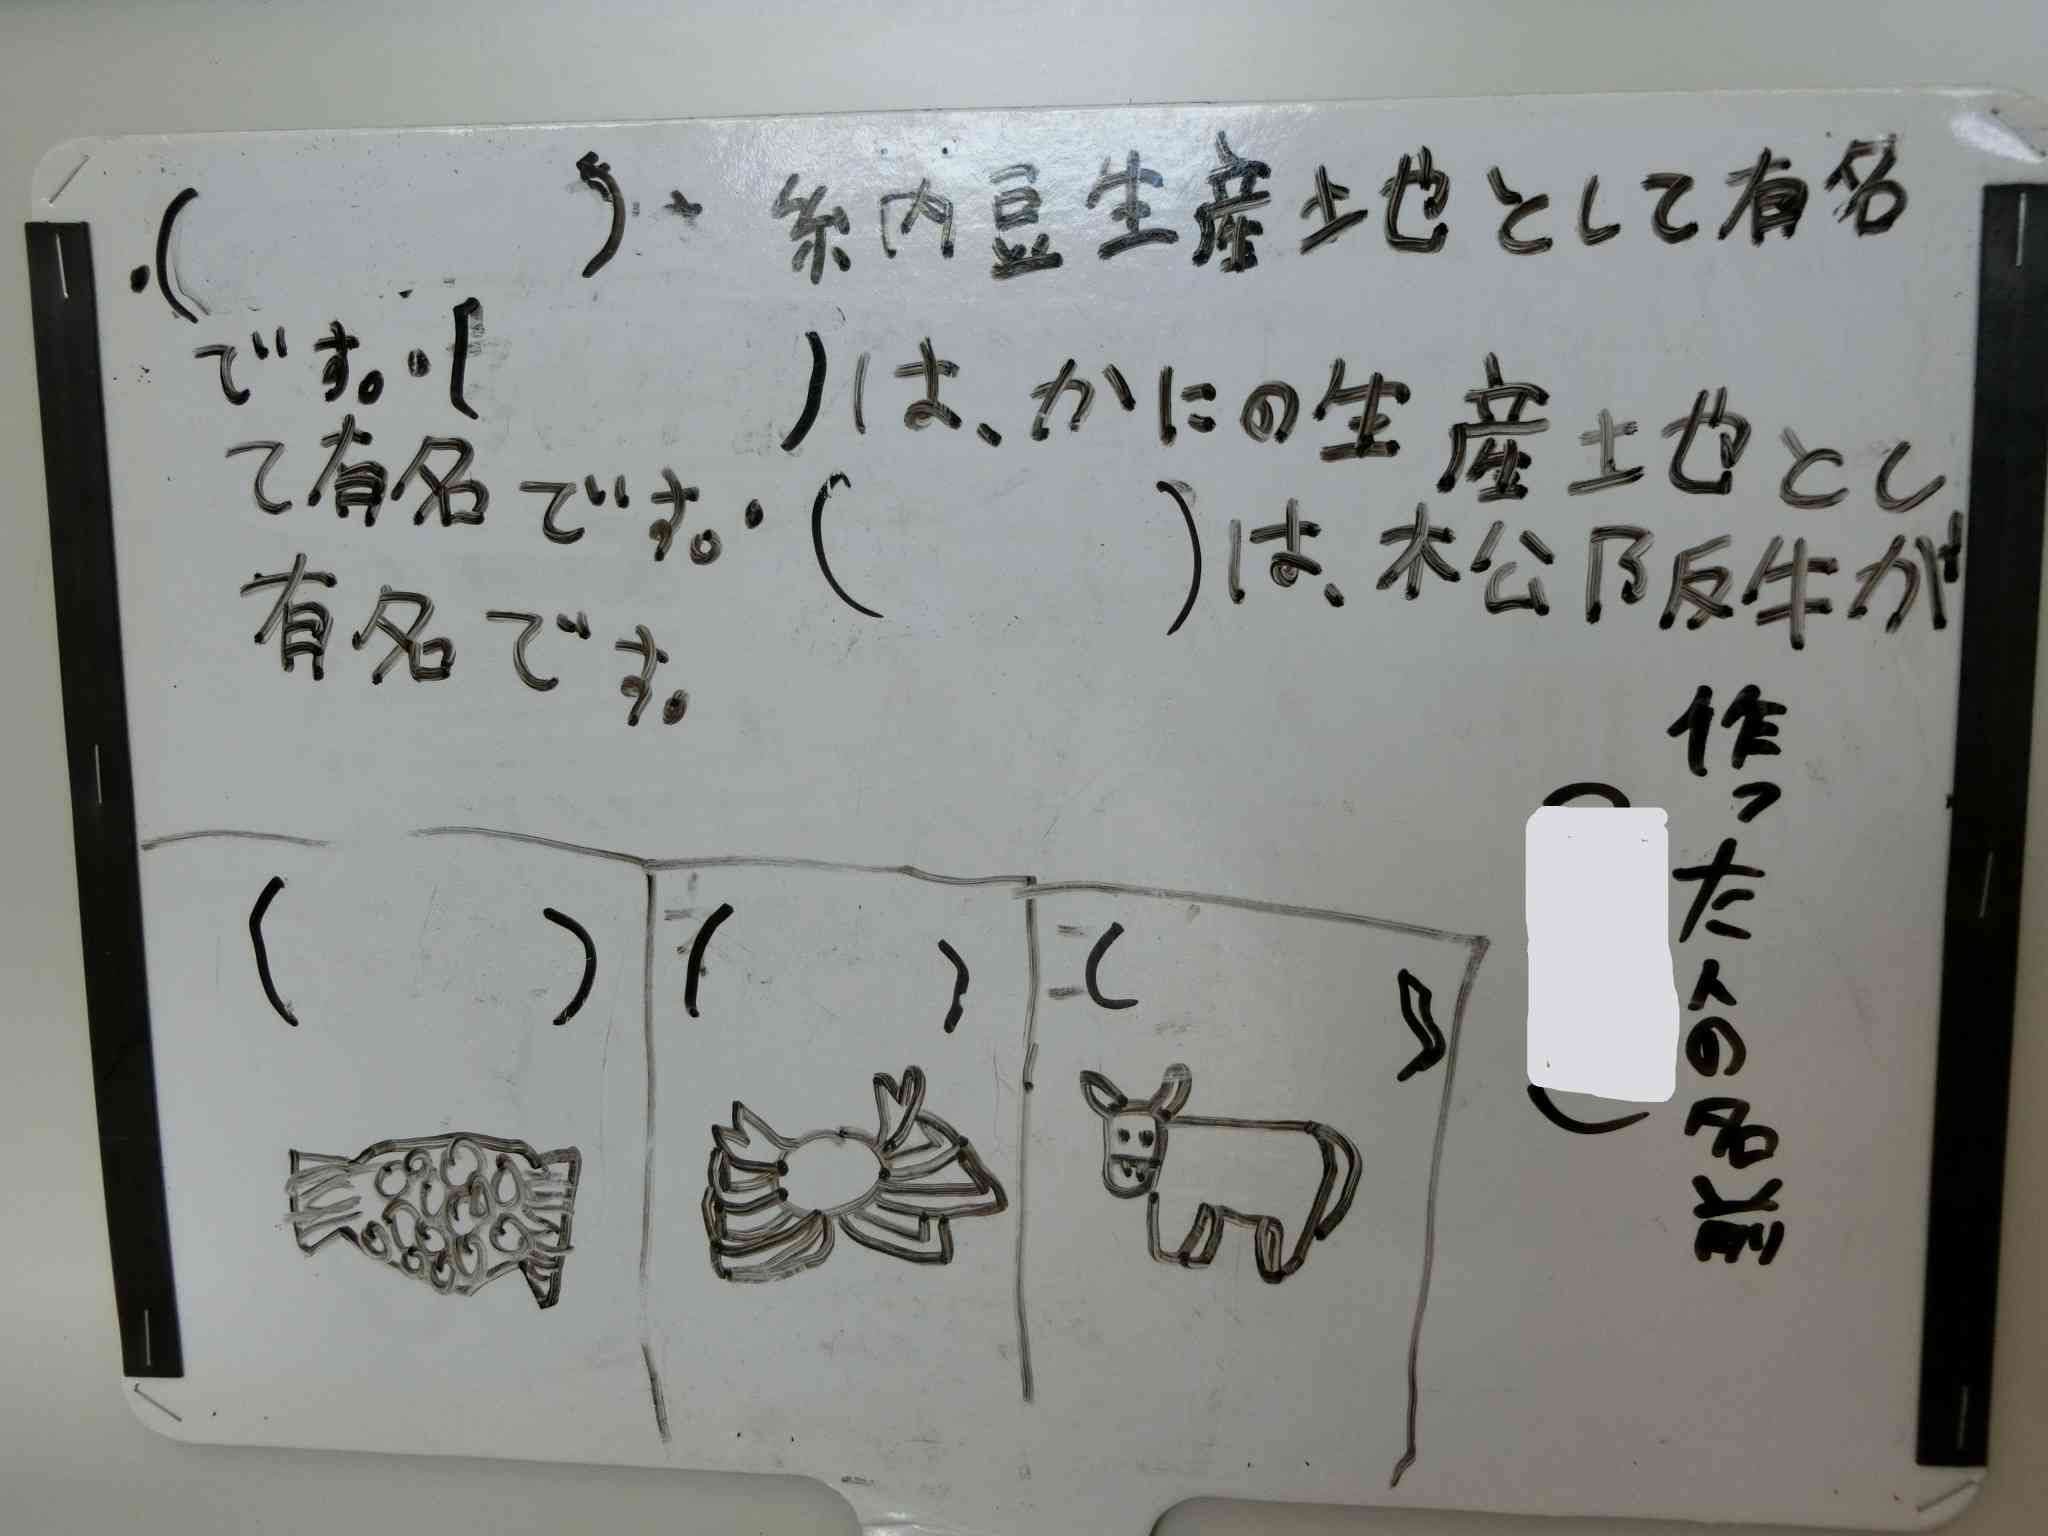 ・(　　　)は、納豆生産地として有名
です。・(　　　)は、かにの生産地とし
て有名です。・(　　　)は、松阪牛が
有名です。
作った人の名前
(　　　)
(　　　) (　　　) (　　　)